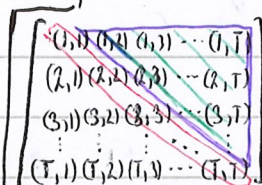 (1,1) (1,2) (1,3) ... (1,T)
(2,1) (2,2) (2,3) ... (2,T)
(3,1) (3,2) (3,3) ... (3,T)
⋮ ⋮ ⋱ ⋮
(T,1) (T,2) (T,3) ... (T,T)